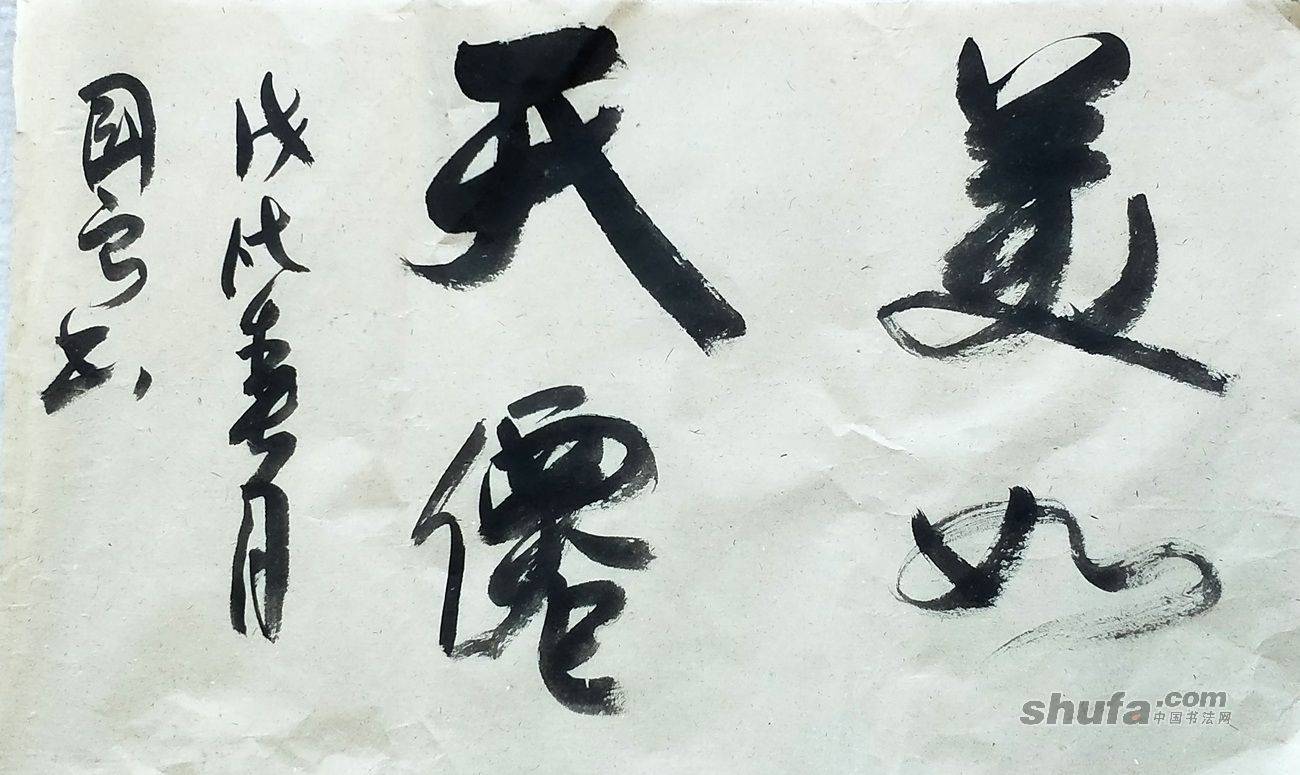 美如
天僊
戊戌春月
國
书
shufa.com
中国书法网